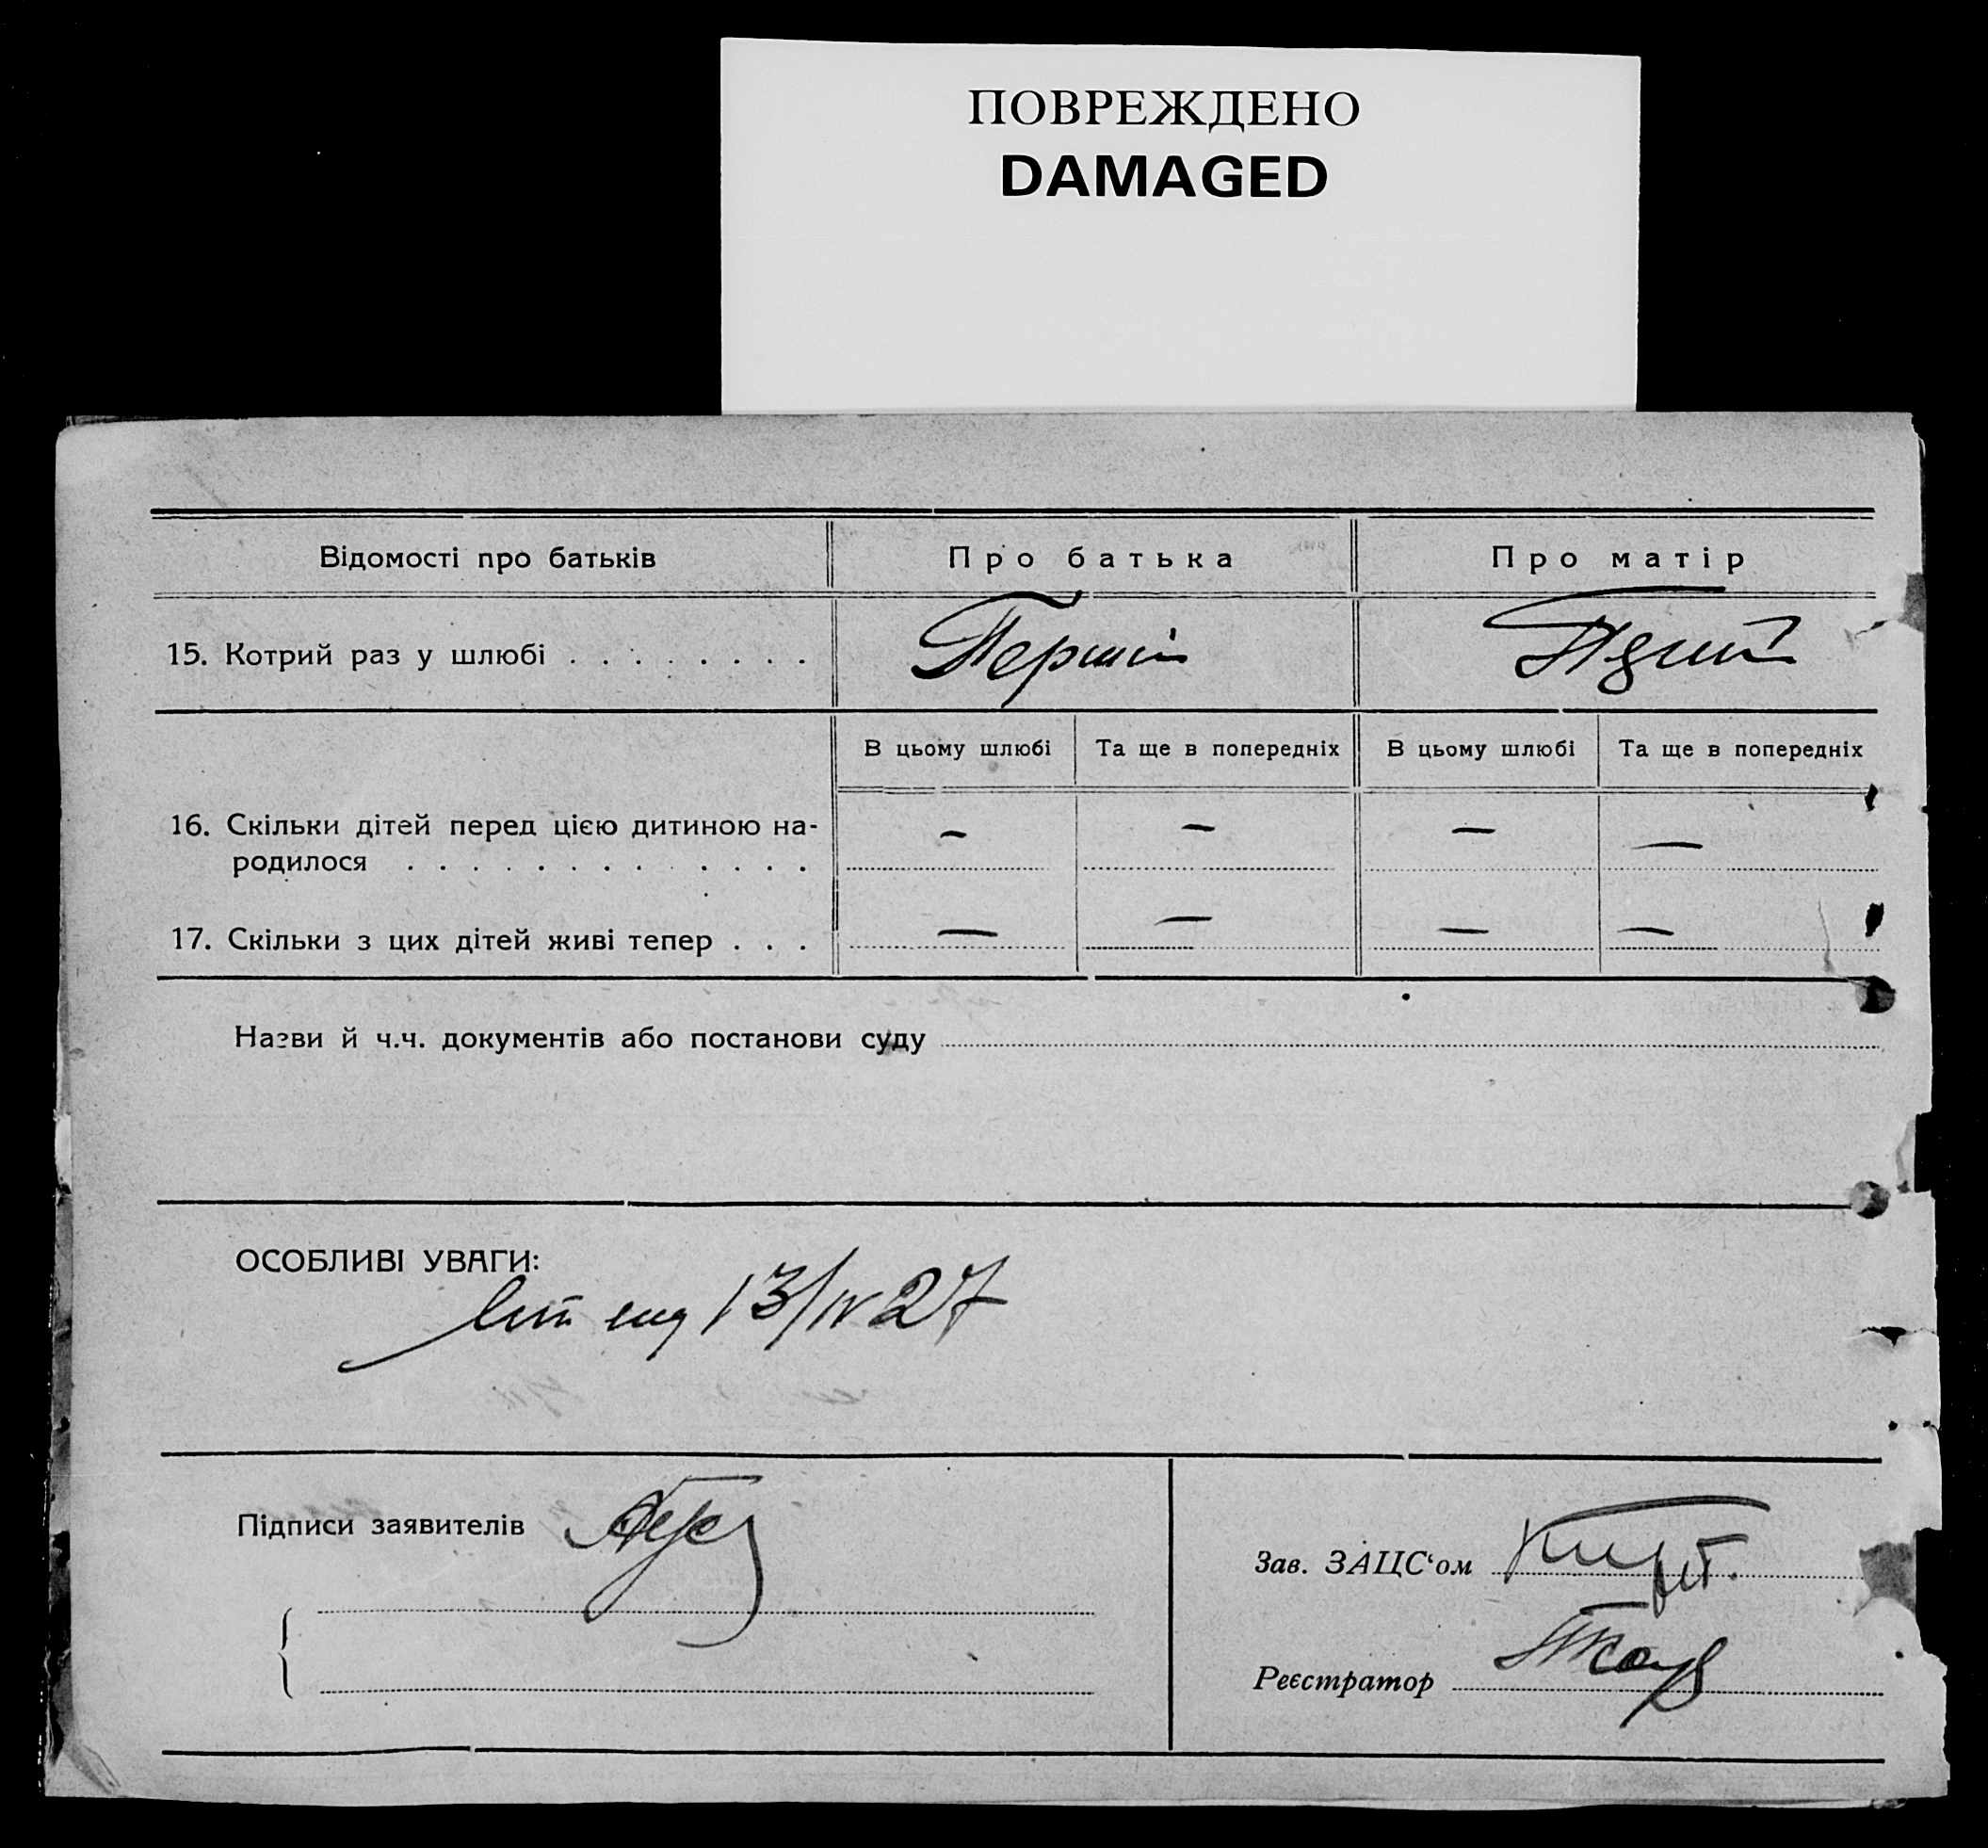 ПОВРЕЖДЕНО
DAMAGED
Відомості про батьків
Про батька
Про матір
15. Котрий раз у шлюбі . . . . . . . .
Перший
В цьому шлюбі
Та ще в попередніх
В цьому шлюбі
Та ще в попередніх
16. Скільки дітей перед цією дитиною на-
родилося . . . . . . . . . . . . .
— — — —
17. Скільки з цих дітей живі тепер . . .
— — — —
Назви й ч.ч. документів або постанови суду
ОСОБЛИВІ УВАГИ:
13/IV 27
Підписи заявителів
Зав. ЗАЦС‘ом
Реєстратор